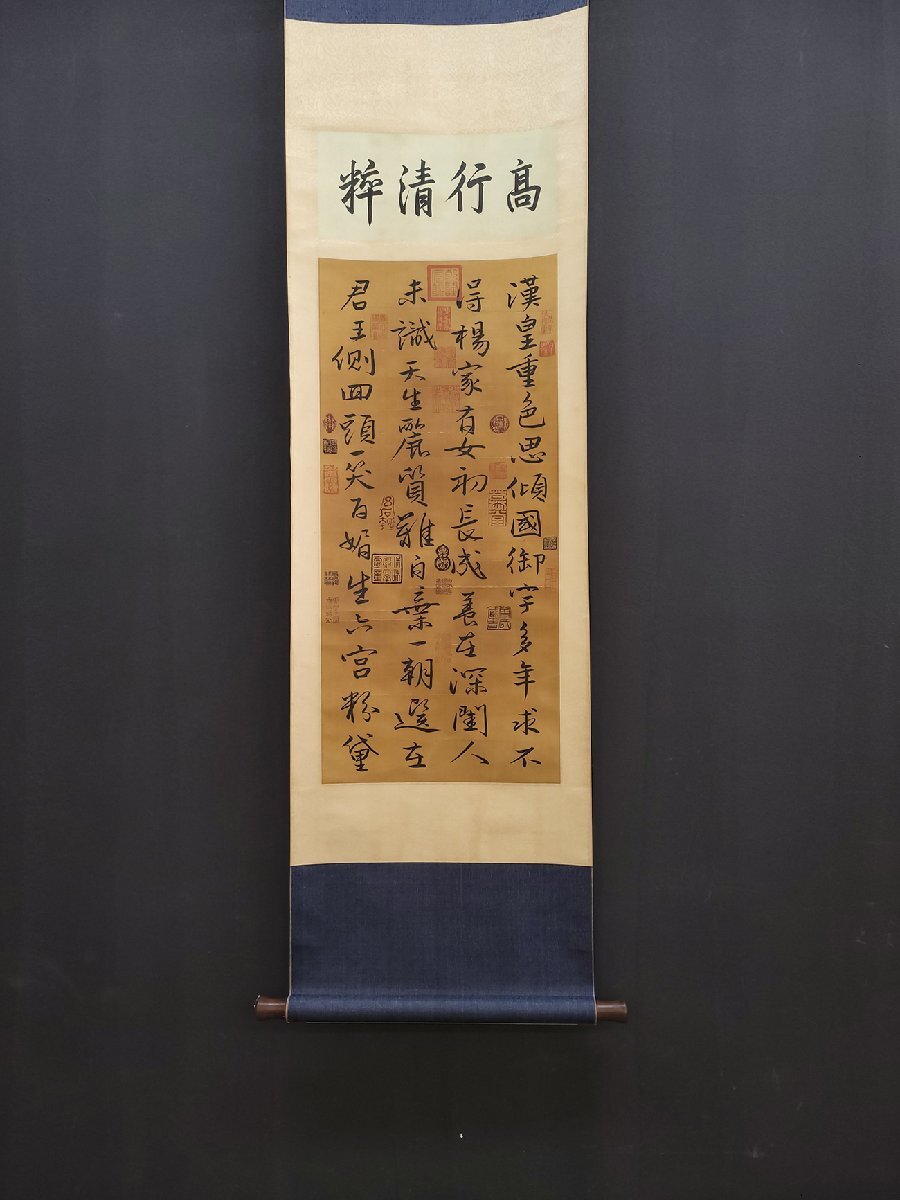 高行清粹
漢皇重色思傾國御宇多年求不
得楊家有女初長成養在深閨人
未識天生麗質難自棄一朝選在
君王側回頭一笑百媚生六宮粉黛